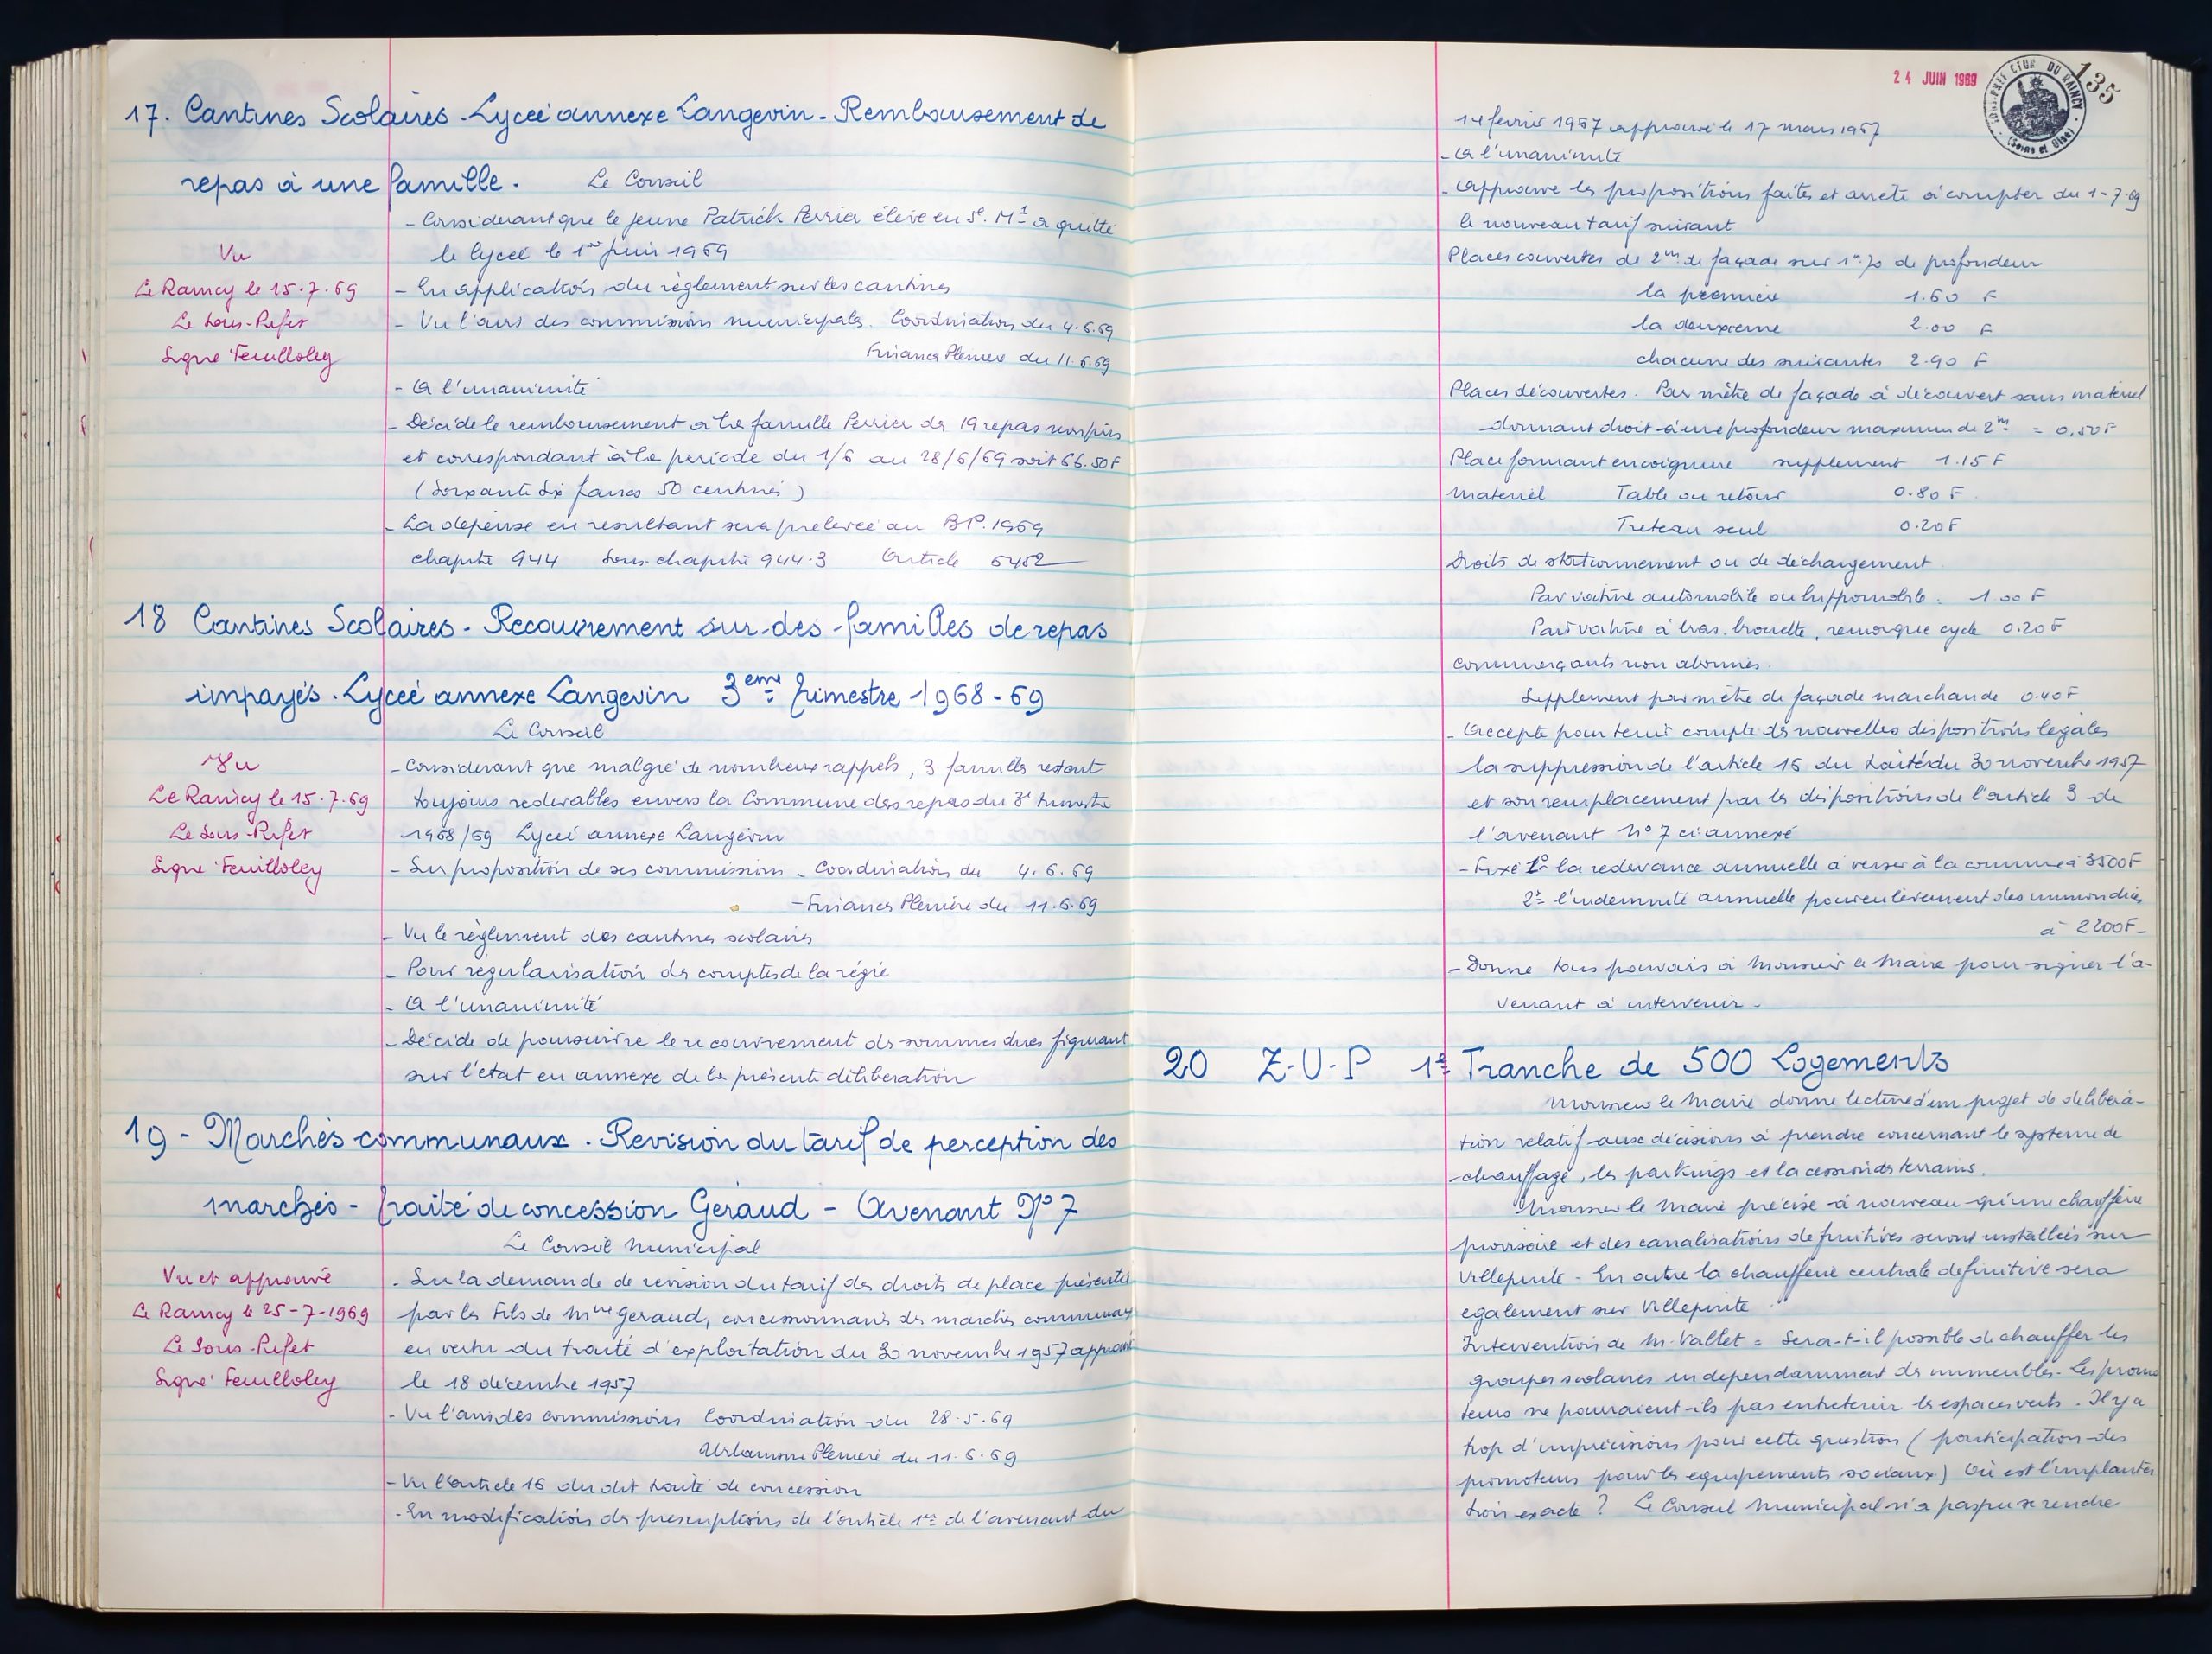 17. Cantines Scolaires - Lycée annexe Langevin - Remboursement de
repas à une famille.
Le Conseil
- Considerant que le jeune Patrick Perrier élève en 5e. M1 a quitté
le lycée le 1er juin 1969
Vu
Le Raincy le 15.7.69
Le Sous-Prefet
Signé Feuilloley
- En application du règlement sur les cantines
- Vu l'avis des commissions municipales. Coordination du 4.6.69
Finances Plenière du 11.6.69
- A l'unanimité
- Décide le remboursement à la famille Perrier de 19 repas non pris
et correspondant à la periode du 1/6 au 28/6/69 soit 66.50F
(Soixante Six francs 50 centimes)
- La depense en resultant sera prelevée au B.P. 1969
chapitre 944 Sous-chapitre 944.3 Article 6452
18 Cantines Scolaires - Recouvrement sur des familles de repas
impayés. Lycée annexe Langevin 3eme trimestre 1968-69
Le Conseil
Vu
Le Raincy le 15.7.69
Le Sous-Prefet
Signé Feuilloley
- Considerant que malgré de nombreux rappels, 3 familles restent
toujours redevables envers la Commune des repas du 3e trimestre
1968/69 Lycée annexe Langevin
- Sur proposition de ses commissions - Coordination du 4.6.69
- Finances Plenière du 11.6.69
- Vu le règlement des cantines scolaires
- Pour regularisation des comptes de la régie
- A l'unanimité
- Décide de poursuivre le recouvrement des sommes dues figurant
sur l'état en annexe de la présente déliberation
19 - Marchés communaux. Revision du tarif de perception des
marchés - traité de concession Geraud - Avenant N° 7
Le Conseil Municipal
Vu et approuvé
Le Raincy le 25-7-1969
Le Sous-Prefet
Signé Feuilloley
- Sur la demande de revision du tarif des droits de place présentée
par les Fils de Mme Geraud, concessionnaires des marchés communaux
en vertu du traité d'exploitation du 30 novembre 1957 approuvé
le 18 décembre 1957
- Vu l'avis des commissions Coordination du 28.5.69
Urbanisme Plenière du 11.6.69
- Vu l'article 16 du dit traité de concession
- En modification des prescriptions de l'article 1er de l'avenant du
24 JUIN 1969
SOUS-PREFECTURE DU RAINCY
(Seine et Oise)
135
14 fevrier 1967 approuvé le 17 mars 1967
- A l'unanimité
- Approuve les propositions faites et arrete à compter du 1-7-69
le nouveau tarif suivant
Places couvertes de 2m. de façade sur 1m.70 de profondeur
la première 1.60 F
la deuxième 2.00 F
chacune des suivantes 2.90 F
Places découvertes. Par mètre de façade à découvert sans matériel
donnant droit à une profondeur maximum de 2m. = 0,50F
Place formant encoignure supplement 1.15 F
Materiel Table ou retour 0.80 F.
Treteau seul 0.20F
Droits de stationnement ou de déchargement
Par voiture automobile ou hippomobile. 1.00 F
Par voiture à bras, brouette, remorque cycle 0.20 F
Commerçants non abonnés.
Supplement par mètre de façade marchande 0.40 F
- Accepte pour tenir compte de nouvelles dispositions legales
la suppression de l'article 16 du traité du 30 novembre 1957
et son remplacement par les dispositions de l'article 3 de
l'avenant N° 7 ci annexé
- Fixe 1° la redevance annuelle à verser à la commune à 3500F
2° l'indemnité annuelle pour enlèvement des immondices
à 2200F-
- Donne tous pouvoirs à Monsieur le Maire pour signer l'a-
venant à intervenir.
20 Z.U.P 1e Tranche de 500 Logements
Monsieur le Maire donne lecture d'un projet de delibera-
tion relatif aux décisions à prendre concernant le systeme de
chauffage, les parkings et la cession des terrains.
Monsieur le Maire précise à nouveau qu'une chaufferie
provisoire et des canalisations definitives seront installées sur
Villepinte - En outre la chaufferie centrale definitive sera
egalement sur Villepinte
Intervention de M. Vallet = Sera-t-il possible de chauffer les
groupes scolaires independamment des immeubles. Les promo
teurs ne pourraient-ils pas entretenir les espaces verts. Il y a
trop d'imprécisions pour cette question (participation des
promoteurs pour les equipements sociaux) Où est l'implanta
tion exacte ? Le Conseil Municipal n'a pas pu se rendre